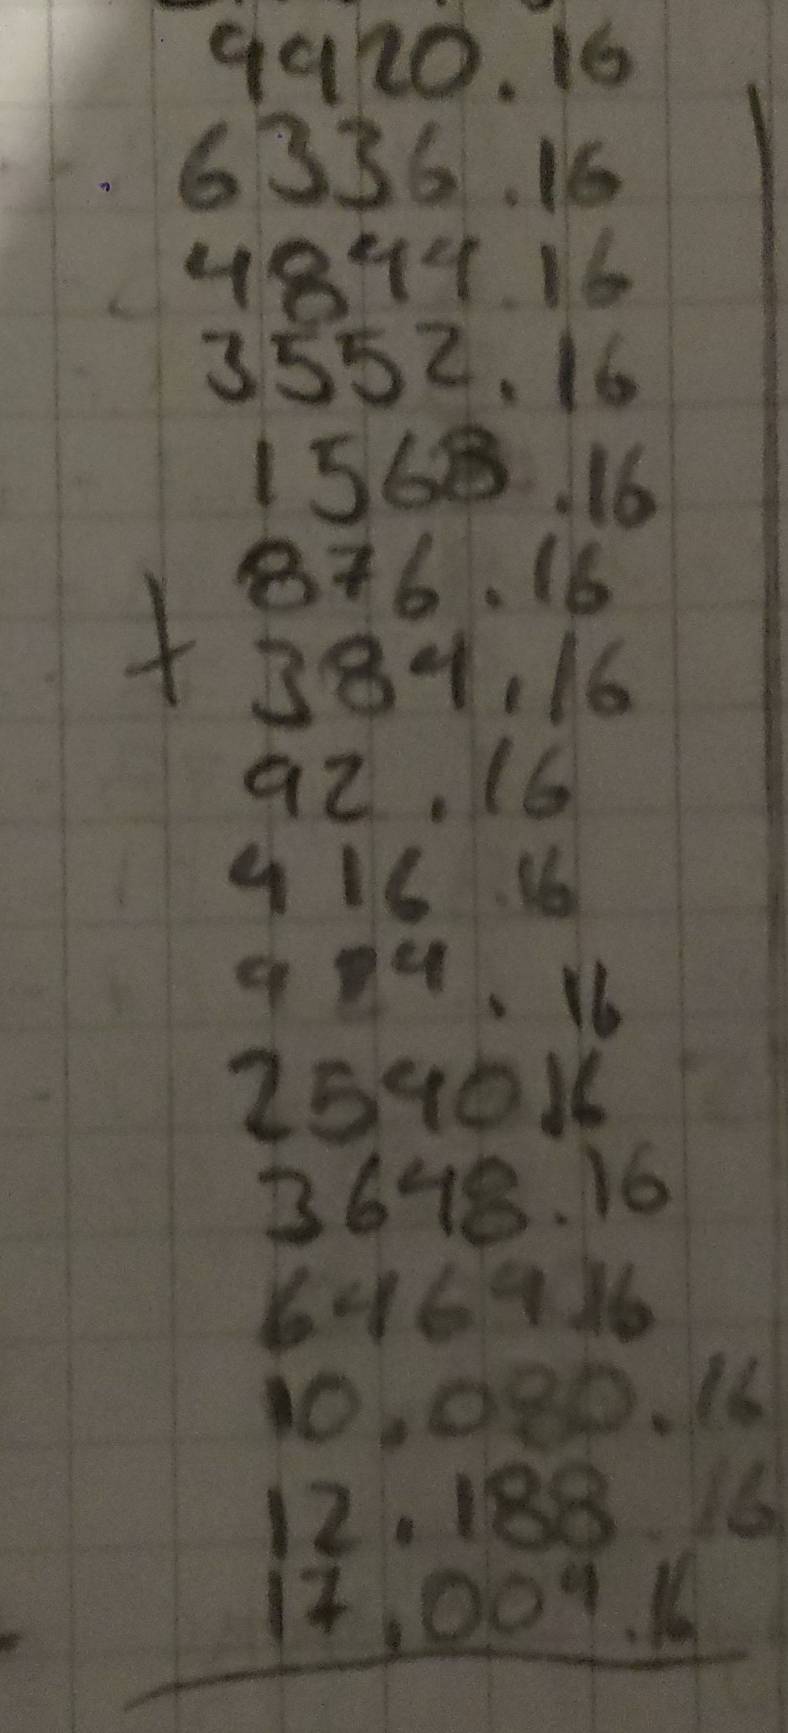 9920.16
6336.16
4844.16
3552.16
1568.16
876.16
+ 384,16
92.16
416.16
2540.16
3648.16
6464.16
10.080.16
12.188.16
17.004.16